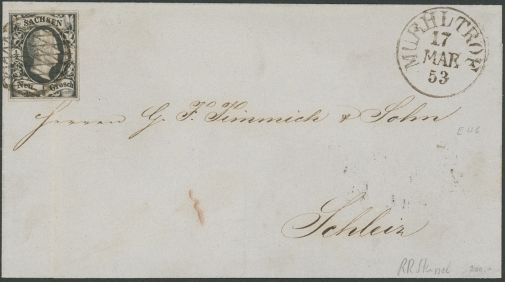 SACHSEN
Neu Grosch
MUEHLTROF
17
MAR
53
Herren G. F. Kimmich & Sohn
Schleiz
RR Stempel